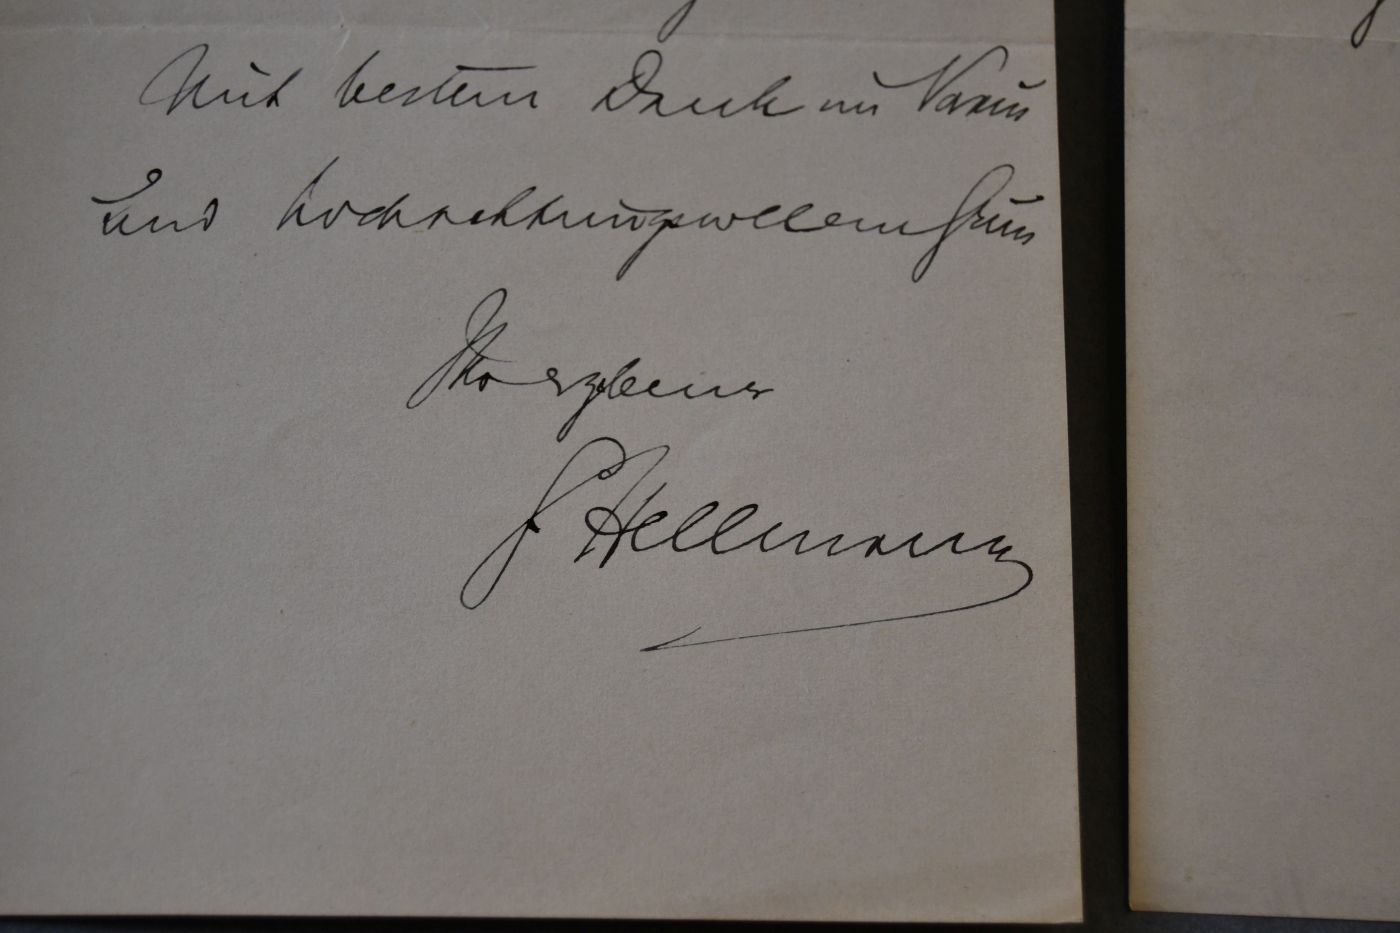 Mit bestem Dank im Voraus
und hochachtungsvollem Gruss
Ihr ergebener
G Hellmann